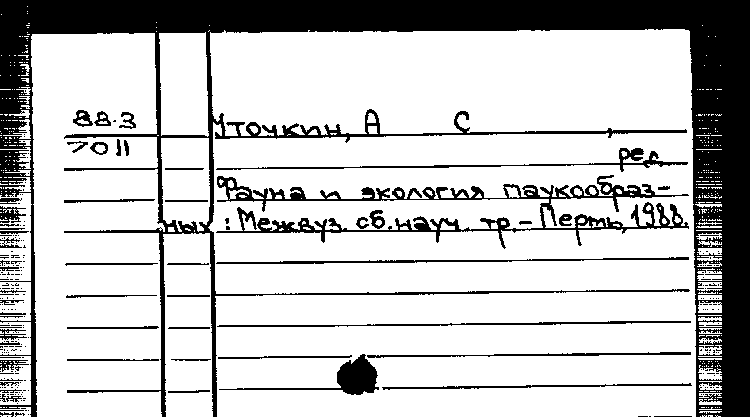 88-3 Уточкин, А С ,
7011
ред.
Фауна и экология паукообраз-
ных : Межвуз. сб. науч. тр. – Пермь, 1988.